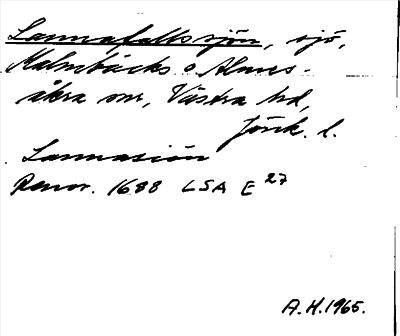 Lannafallssjön, sjö,
Malmbäcks o Almes-
åkra snr, Västra hd,
Jönk. l.
Lannasiön
Renov. 1688 LSA E 27
A.H. 1965.